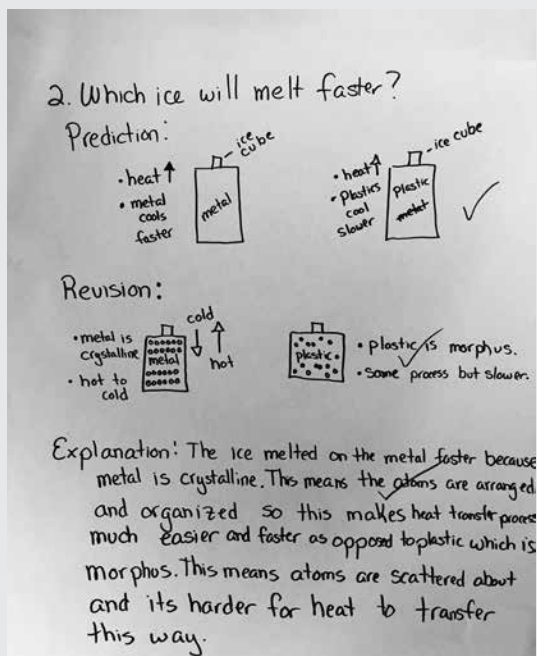 2. Which ice will melt faster?
Prediction:
• heat ↑
• metal
cools
faster
ice
cube
metal
• heat ↑
• Plastics
cool
slower
ice cube
plastic
Revision:
• metal is
crystalline
• hot to
cold
metal
cold
hot
plastic
• plastic is morphus.
• Same process but slower.
Explanation: The ice melted on the metal faster because
metal is crystalline. This means the atoms are arranged
and organized so this makes heat transfer process
much easier and faster as opposed to plastic which is
morphus. This means atoms are scattered about
and its harder for heat to transfer
this way.